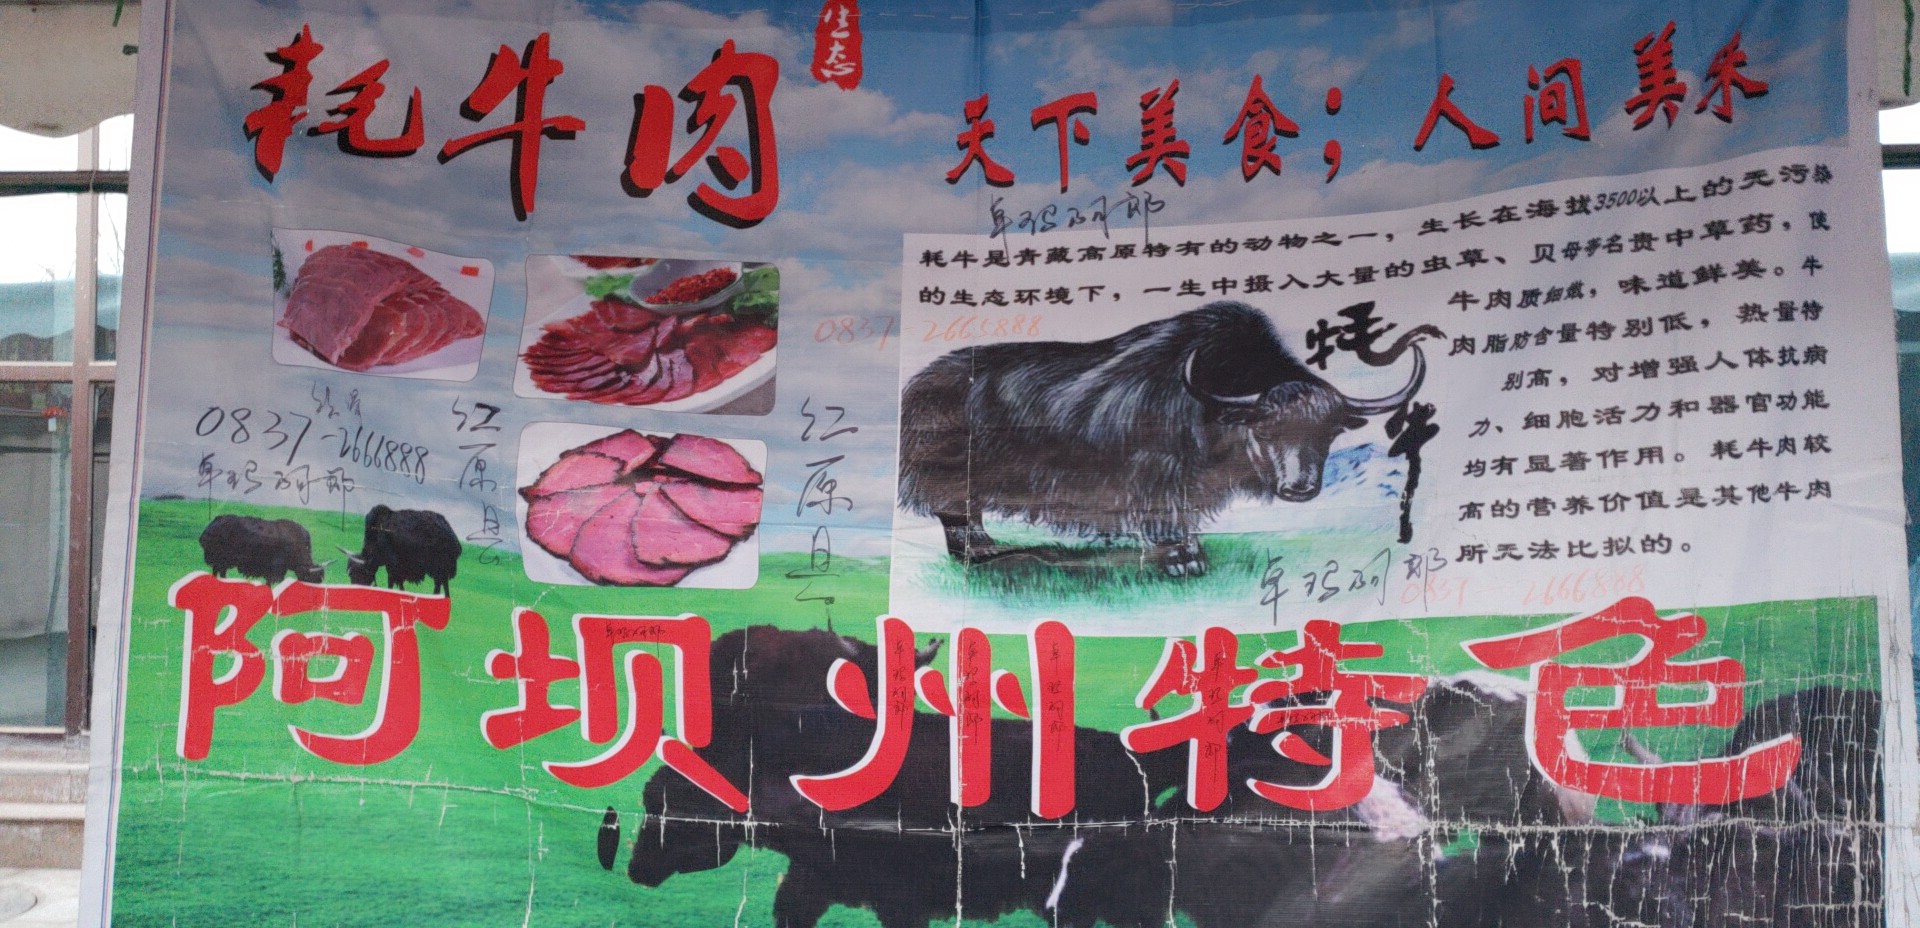 生态
耗牛肉
天下美食；人间美禾
卓玛阿郎
耗牛是青藏高原特有的动物之一，生长在海拔3500以上的无污染
的生态环境下，一生中摄入大量的虫草、贝母等名贵中草药，使
牛肉质细嫩，味道鲜美。牛
肉脂肪含量特别低，热量特
别高，对增强人体抗病
力、细胞活力和器官功能
均有显著作用。耗牛肉较
高的营养价值是其他牛肉
所无法比拟的。
牦牛
0837-2666888
卓玛阿郎
红原县
红原县
卓玛阿郎
阿坝州特色